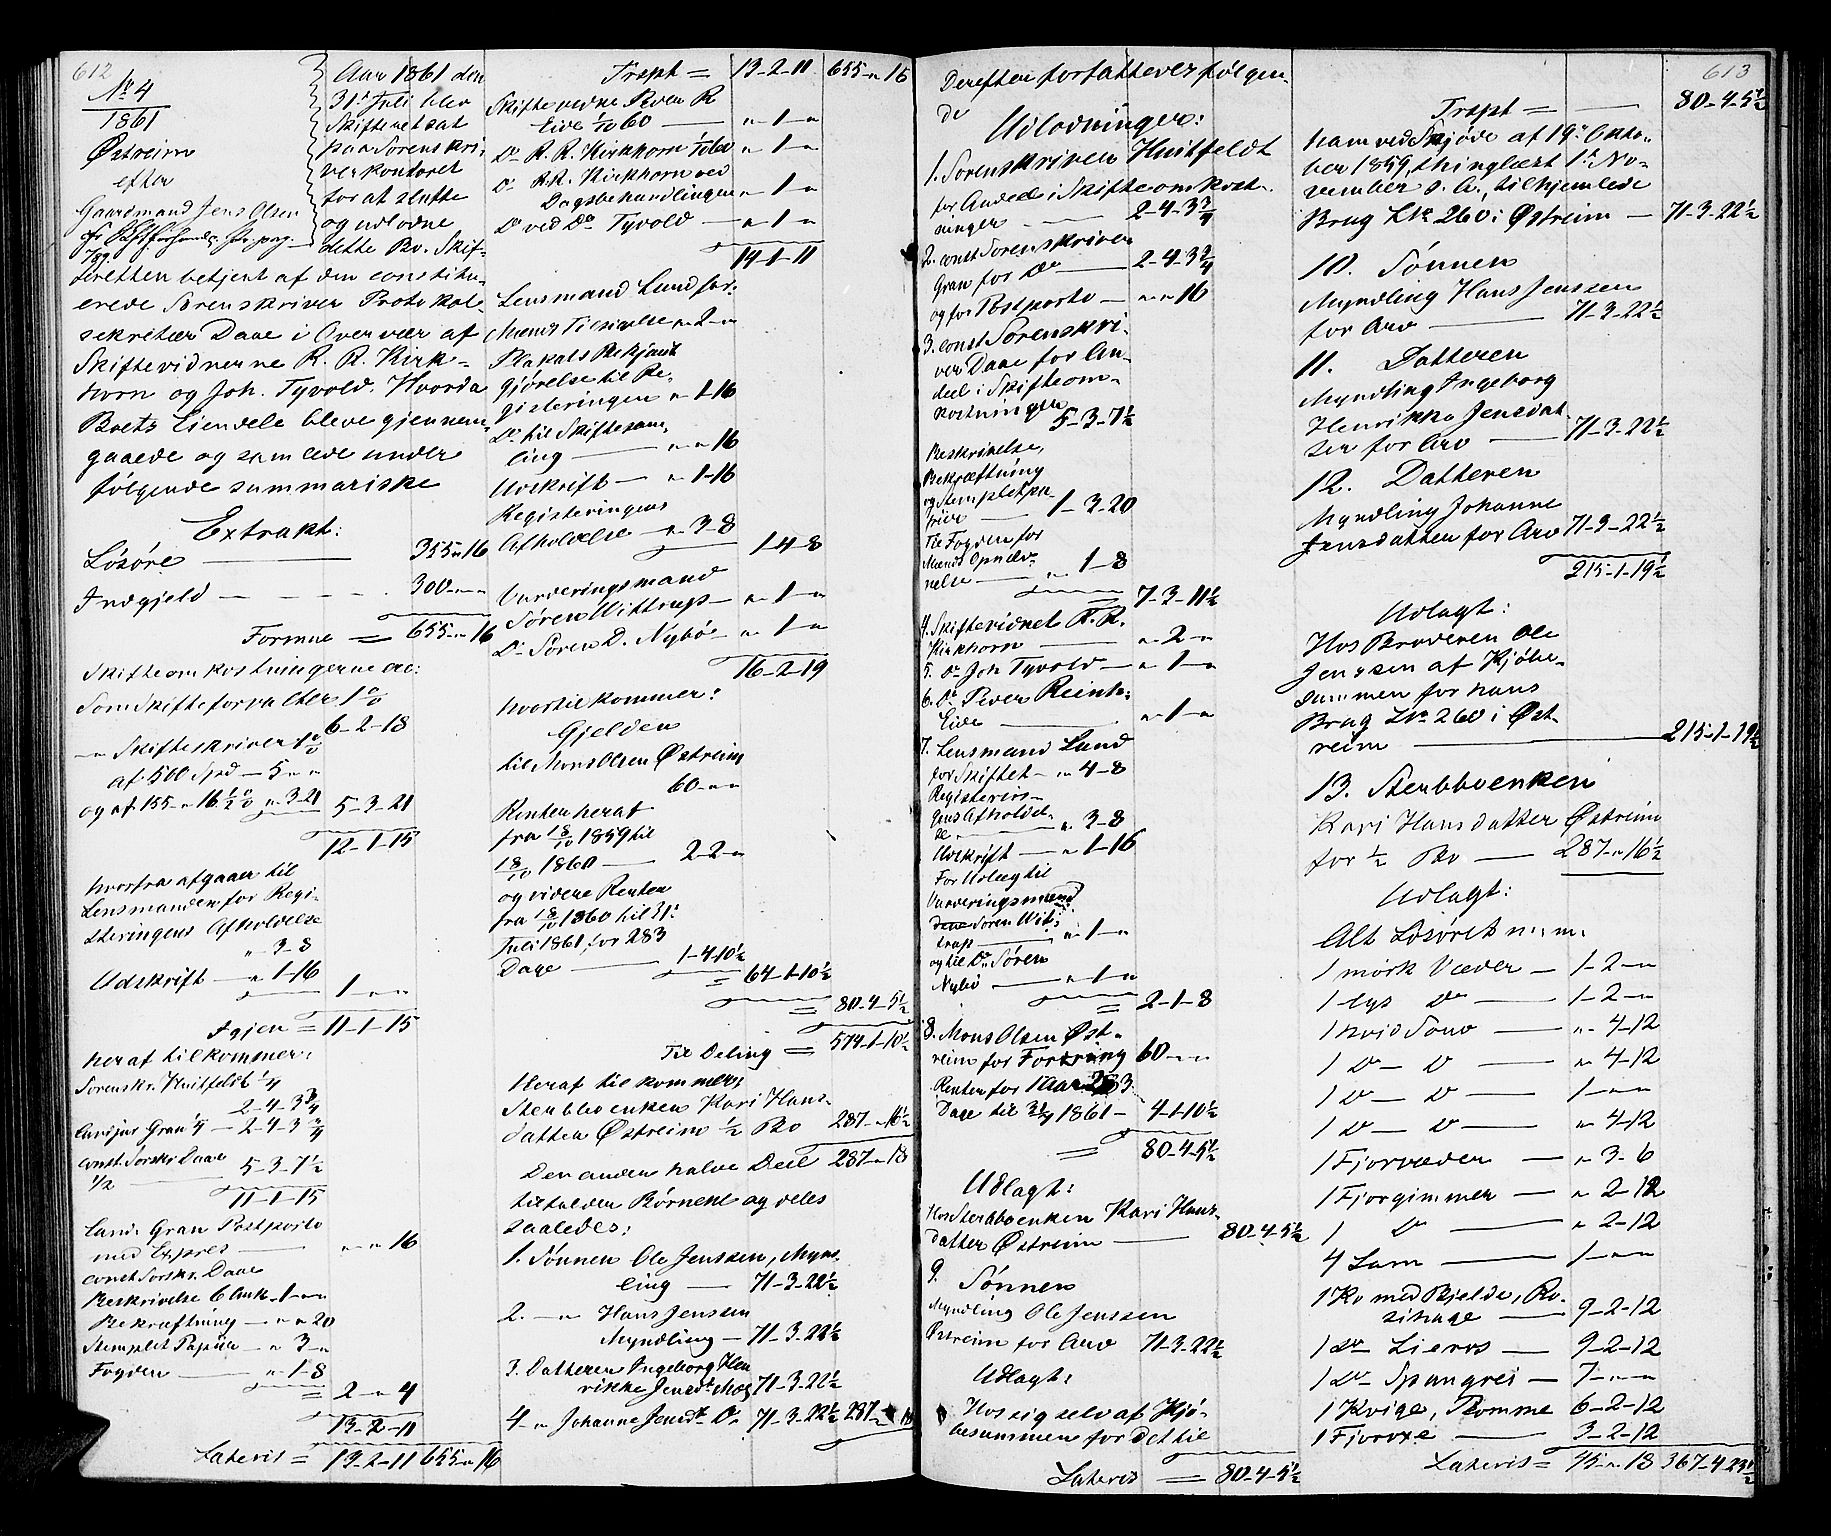 612
No 4
1861
Østreim
efter
Gaardmand Jens Olsen
Aar 1861 den
31te Juli blev
Skifteret sat
paa Sorenskri-
verkontoret
for at slutte
og udlodne
dette Bo. Skif-
teretten betjent af den constitu-
erede Sorenskriver Protokol-
sekretær Daae i Overvær af
Skiftevidnerne R. R. Kirk-
horn og Joh. Tyvold. Hvorda
Boets Eiendele bleve gjennem-
gaaede og samlede under
følgende summariske
Extrakt:
Løsøre — 355 " 16
Indgjeld — 300 " "
Formue = 655 " 16
Skifteomkostningerne ere:
Som Skifteforvalter 1 %
6-2-18
" Skifteskriver 1 %
af 500 Spd — 5 " "
og af 155 " 16 ½ % " 3-21 5-3-21
12-1-15
hvorfra afgaaer til
Lensmanden for Regi-
steringens Afholdelse
" 3-8
Udskrift — " 1-16
1 " "
Igjen = 11-1-15
heraf tilkommer:
Sorenskr. Huitfeldt ¼
2-4-3¾
Gran ¼ — 2-4-3¾
const. Sorskr. Daae
½ — 5-3-7½
11-1-15
Gran Postporto
med Expres — " " 16
const Sorskr. Daae
Beskrivelse 6 Ark - 1 " "
Bekræftning — " " 20
Stemplet Papiir — " 3 "
Fogden — " 1-8
= 2 " 4
13-2-11
Lateris = 13-2-11 655 " 16
Trspt = 13-2-11 655 " 16
Skiftevidne Peder R
Eide 1/10 60 — " 1 "
Do R. R. Kirkhorn — " 1 "
Do R. R. Kirkhorn ved
Dagsbehandlingen " 1 "
Do ved Do Tyvold — " 1 "
14-1-11
Lensmand Lund for:
Mænds Tilsigelse " 2 "
Plakats Bekjendt
gjørelse til Re-
gisteringen " 1-16
Do til Skiftesam-
ling — " " 16
Udskrift — " 1-16
Registeringens
Afholdelse — " 3-8
1-4-8
Vurderingsmand
Søren Wittrup — " 1 "
Do Søren D. Nybøe — " 1 "
16-2-19
hvortil kommer:
Gjelden
til Mons Olsen Østreim
60 " "
Renter heraf
fra 18/10 1859 til
18/10 1860 — 2-2 "
og videre Renter
fra 18/10 1860 til 31te
Juli 1861, for 283
Dage — 1-4-10½
= 64-1-10½
= 80-4-5½
Til Deling = 574-1-10½
Heraf tilkommer:
Sterbboenken Kari Hans-
datter Østreim ½ Bo 287 " 16½
Den anden halve Deel 287 " 18
tilfalder Børnene og deles
saaledes:
1. Sønnen Ole Jenssen, Mynd-
ling — 71-3-22½
2. — " Hans Jenssen
Myndling — 71-3-22½
3. Datteren Ingeborg Hen
rikke Jensdt. 71-3-22½
4 " Johanne Jensdt. Do 71-3-22½ 287 " 18
Derefter forfattedes følgen-
de
Udlodninger:
1. Sorenskriver Huitfeldt
for Andeel i Skifteomkost-
ninger — 2-4-3¾
2. const Sorenskriver
Gran for Do — 2-4-3¾
og for Postporto — " " 16
3. const Sorenskri-
ver Daae for An-
deel i Skifteom-
kostningen
5-3-7½
Beskrivelse,
Bekræftning
og Stemplet pa-
piir — 1-3-20
Til Fogden for
Mænds Opnæv-
nelse — " 1-8
= 7-3-11½
4. Skiftevidnet R. R.
Kirkhorn — " 2 "
5. Do Joh Tyvold — " 1 "
6. Do Peder Reinh:
Eide — " 1 "
7. Lensmand Lund
for Skiftet — " 4-8
Registerin-
gens Afholdel-
se — " 3-8
Udskrift — " 1-16
For Udlæg til
Vurderingsmænd
Søren Wit-
trup — " 1 "
og til Do Søren
Nybø — " 1 "
= 2-1-8
8. Mons Olsen Øst-
reim for Fordring 60 " "
Renter for 1 Aar 283
Dage til 31/7 1861 — 4-1-10½
= 80-4-5½
Udlagt:
Hos Sterbboenken Kari Hans-
datter Østreim — 80-4-5½
9. Sønnen
Myndling Ole Jenssen
Østreim for Arv 71-3-22½
Udlagt:
Hos sig selv af Kjø-
besummen for det til
Lateris = 80-4-5½
613
Trspt = — 80-4-5½
ham ved Skjøde af 19de Okto-
ber 1859, thinglæst 1ste No-
vember s. A., tilhjemlede
Brug LNr 260 i Østreim — 71-3-22½
10. Sønnen
Myndling Hans Jenssen
for Arv — 71-3-22½
11. Datteren
Myndling Ingeborg
Henrikke Jensdat-
ter for Arv — 71-3-22½
12. Datteren
Myndling Johanne
Jensdatter for Arv 71-3-22½
215-1-19½
Udlagt:
Hos Broderen Ole
Jenssen af Kjøbe-
summen for hans
Brug LNr 260 i Øst-
reim — 215-1-19½
13. Sterbboenken
Kari Hansdatter Østreim
for ½ Bo — 287 " 16½
Udlagt:
Alt Løsøret n: m:
1 mørk Væder — 1-2 "
1 lys Do — 1-2 "
1 hvid Souv — " 4-12
1 Do — Do — " 4-12
1 Do — Do — 1 " "
1 Do — Do — " 4-12
1 Fjorvæder — " 3-6
1 Fjorgimmer — " 2-12
1 Do — " 2-12
4 Lam — 1 " "
1 Ko med Bjelde, Ro-
sinage — 9-2-12
1 Do Lieros — 9-2-12
1 Do Spangrei — 7 " "
1 Kvige, Blomme 6-2-12
1 Fjoroxe — 3-2-12
Lateris = 45 " 18 367-4-23½